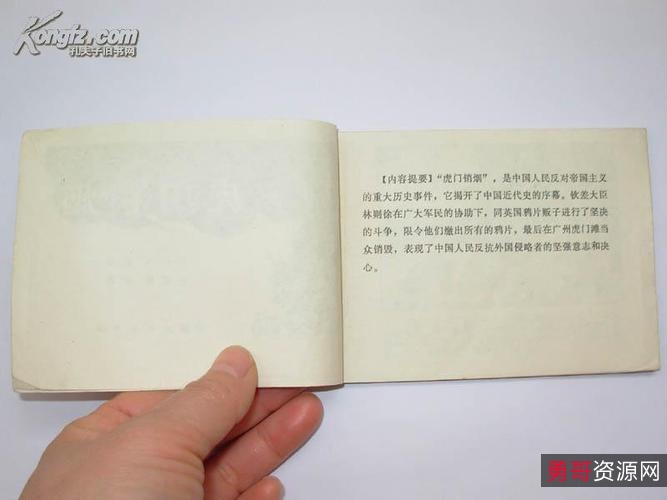 KONGFZ.COM
孔夫子旧书网
【内容提要】“虎门销烟”，是中国人民反对帝国主义
的重大历史事件，它揭开了中国近代史的序幕。钦差大臣
林则徐在广大军民的协助下，同英国鸦片贩子进行了坚决
的斗争，限令他们缴出所有的鸦片，最后在广州虎门滩当
众销毁，表现了中国人民反抗外国侵略者的坚强意志和决
心。
勇哥资源网